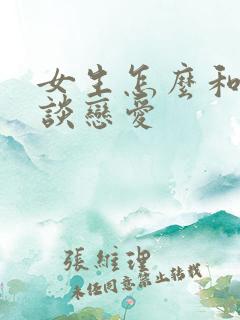 女生怎麼和
談戀愛
張維理
未經同意禁止轉載